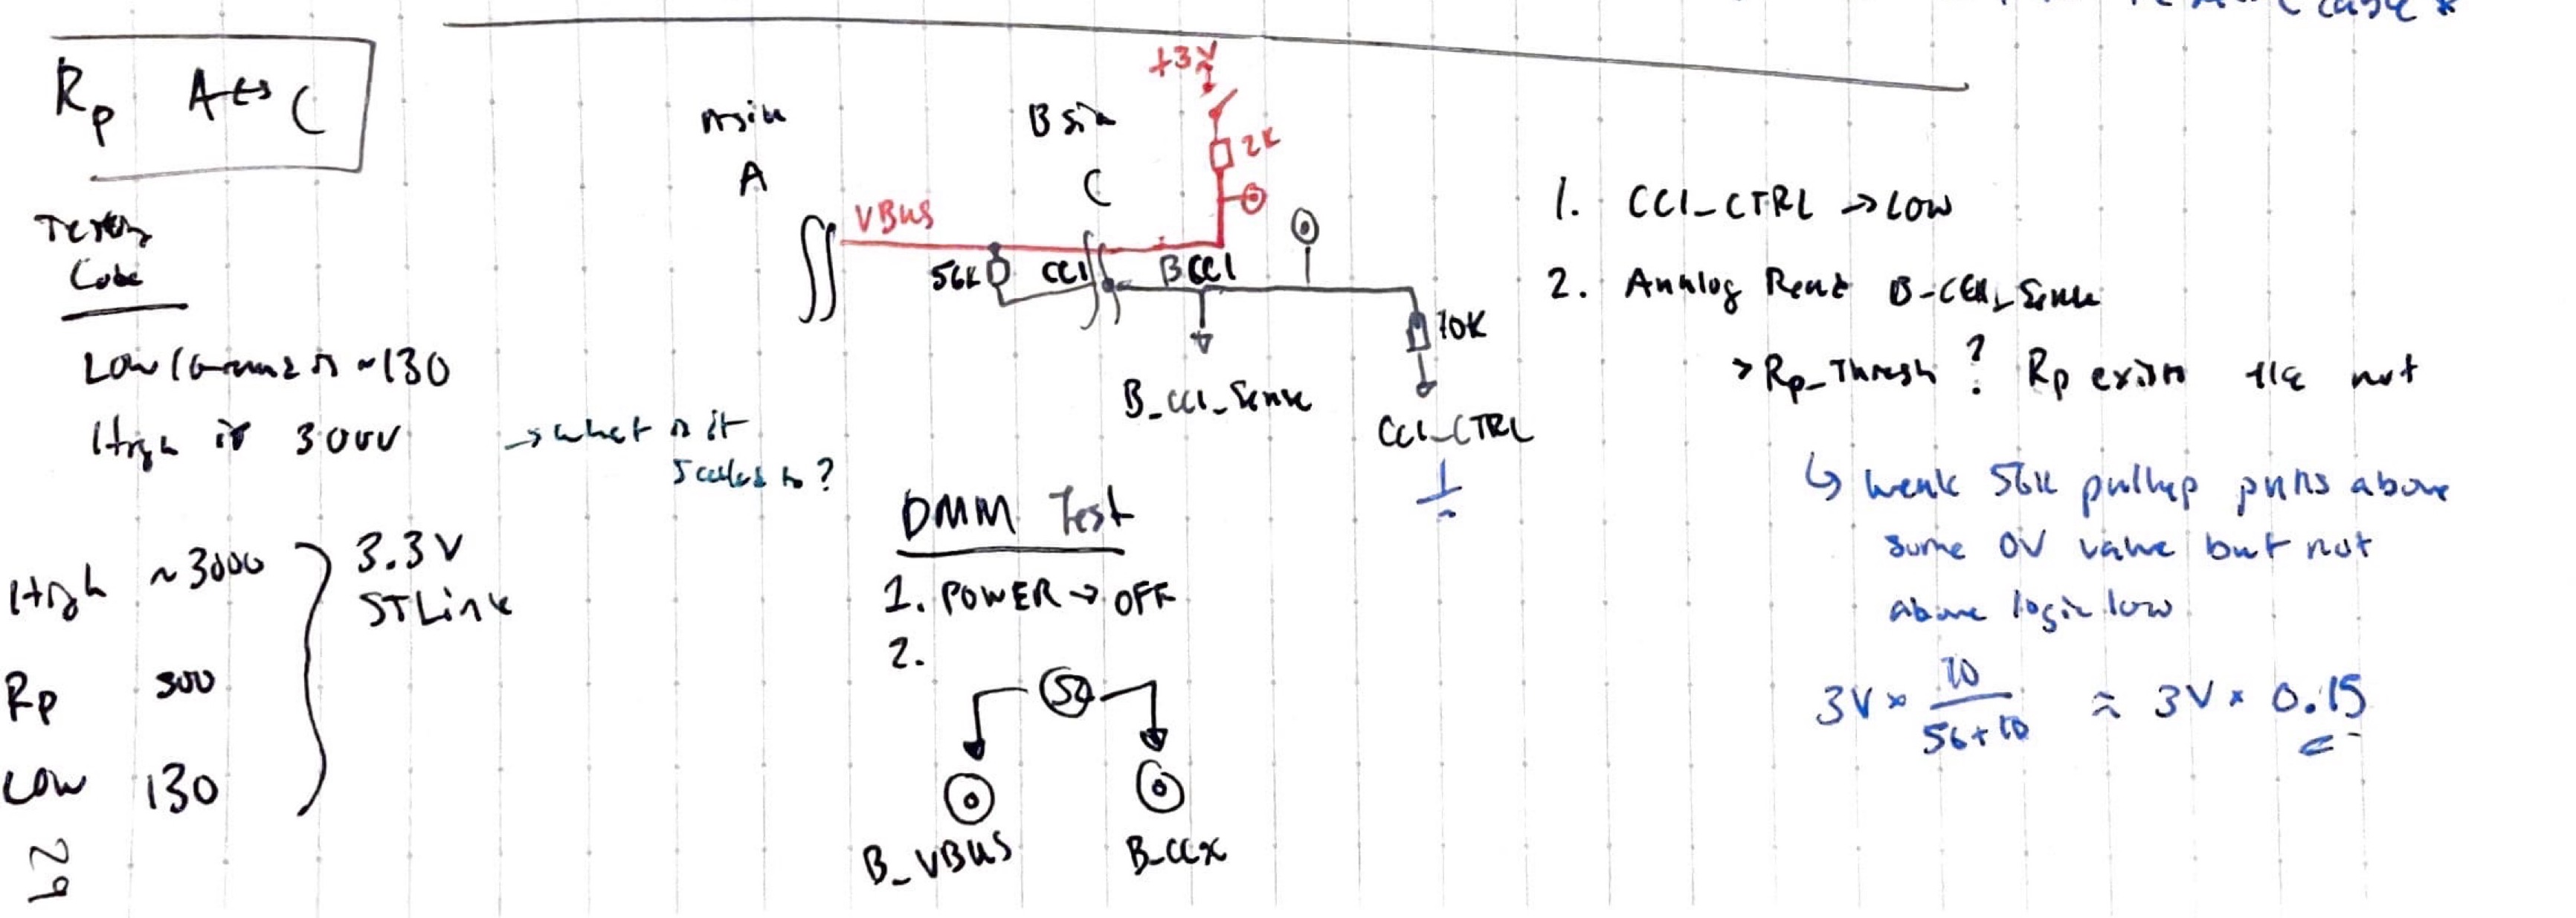 Rp A↔C
Testing
Code
Low/Ground is ~130
High is 3000 → what is it
scaled to?
High ~3000
3.3V
STLink
Rp 500
Low 130
29
A side
A
B side
C
+3V
2K
VBUS
56K
CC1
B CC1
10K
B_CC1_Sense
CC1_CTRL
DMM Test
1. POWER → OFF
2.
Ω
B_VBUS
B_CCX
1. CC1_CTRL → LOW
2. Analog Read B_CC1_Sense
> Rp_Thresh ? Rp exists else not
↳ weak 56K pullup pulls above
some 0V value but not
above logic low
3V × 10 / 56+10 ≈ 3V × 0.15